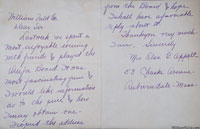 William Fuld Co.
Dear Sir
Last week we spent a
most enjoyable evening
with friends & played the
Ouija Board. It was
most fascinating fun &
I would like information
as to the price & how
I may obtain one.
I enjoyed the address
from the Board & hope
I shall have a favorable
reply about it.
Thanking you very much
I am, Sincerely
Mrs Elsa E. Appelt
53 Drake Avenue
Auburndale Mass.